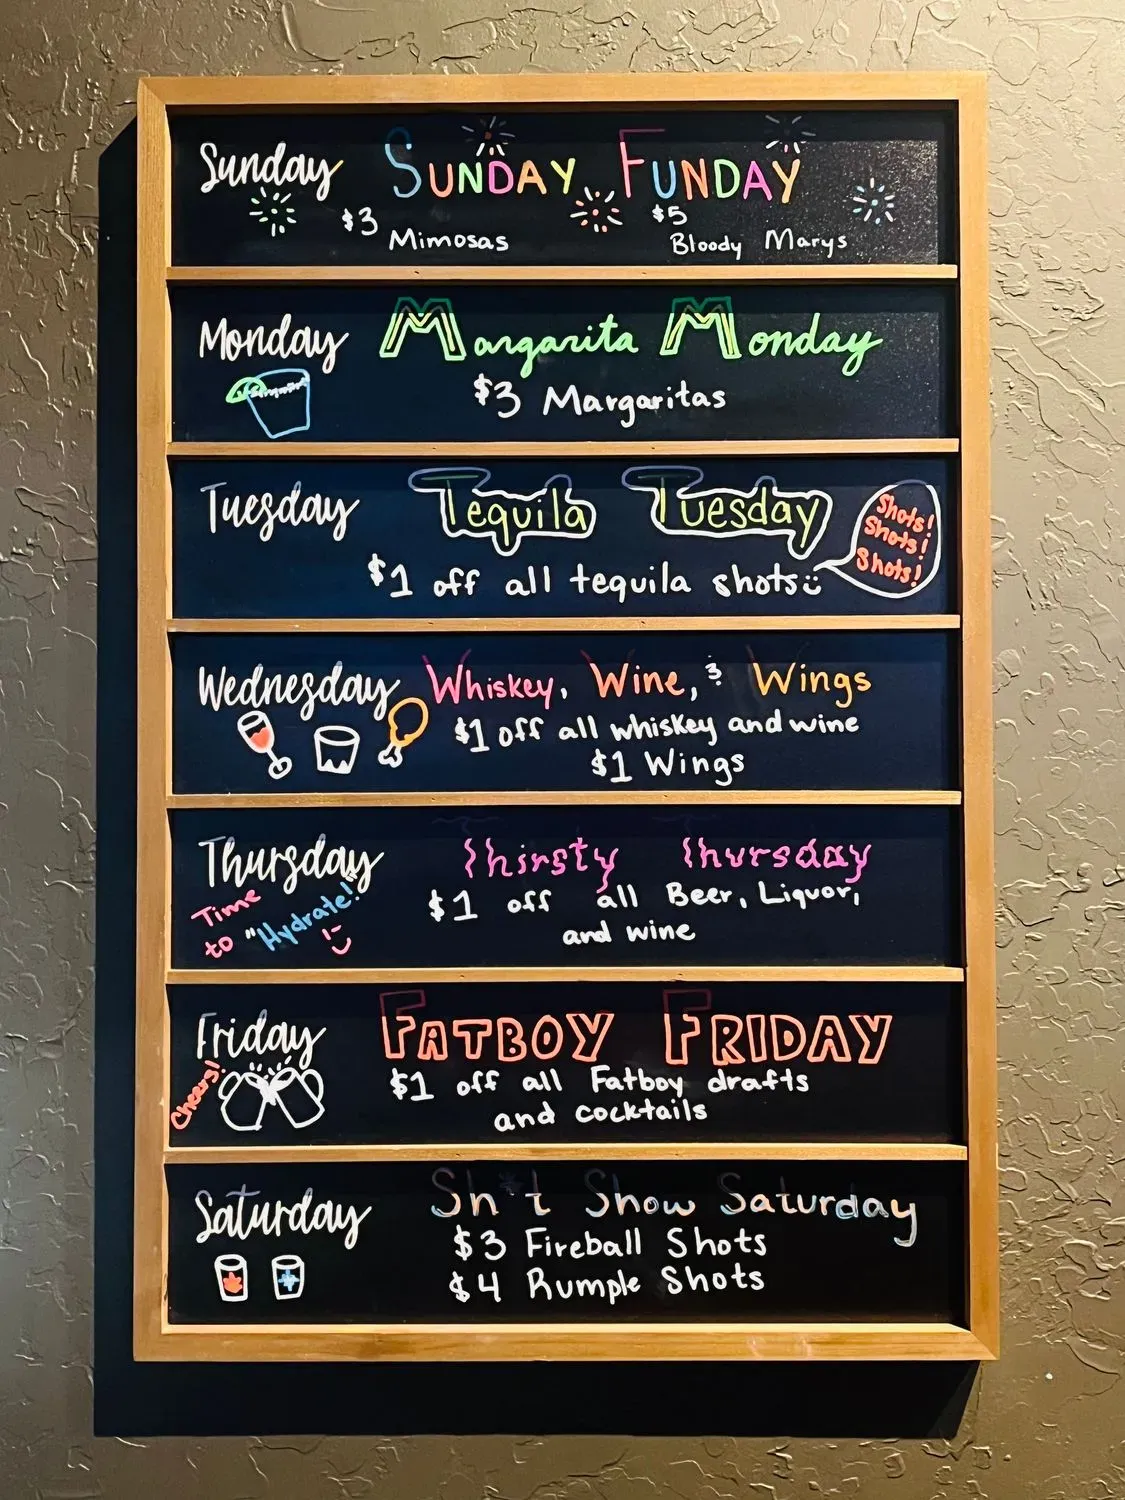 Sunday SUNDAY FUNDAY
$3 Mimosas $5 Bloody Marys
Monday Margarita Monday
$3 Margaritas
Tuesday Tequila Tuesday
Shots!
Shots!
Shots!
$1 off all tequila shots
Wednesday Whiskey, Wine, & Wings
$1 off all whiskey and wine
$1 Wings
Thursday Thirsty Thursday
Time
to "Hydrate!"
$1 off all Beer, Liquor,
and wine
Friday FATBOY FRIDAY
Cheers!
$1 off all Fatboy drafts
and cocktails
Saturday Sh*t Show Saturday
$3 Fireball Shots
$4 Rumple Shots